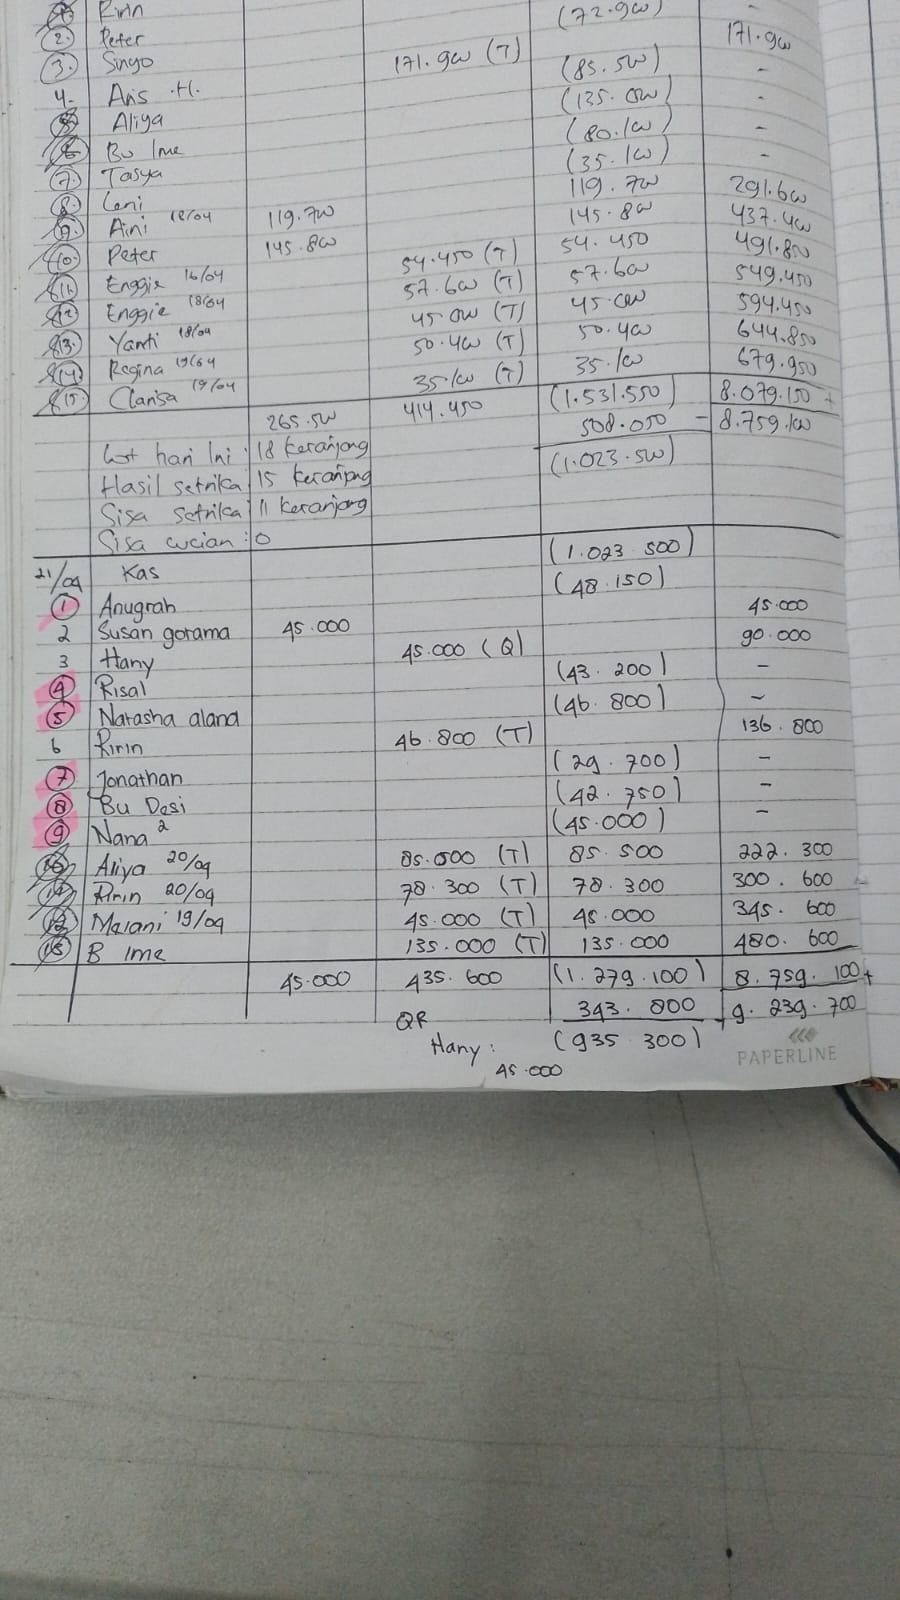 1. Ririn (72.900) -
2. Peter 171.900
3. Sinyo 171.900 (T)
4. Aris .H. (85.500) -
5. Aliya (135.000) -
6. Bu Ime (80.100) -
7. Tasya (35.100) -
8. Leni 119.700 291.600
9. Aini 18/04 119.700 145.800 437.400
10. Peter 145.800 54.450 491.850
11. Enggie 16/04 54.450 (T) 57.600 549.450
12. Enggie 18/04 57.600 (T) 45.000 594.450
13. Yanti 18/04 45.000 (T) 50.400 644.850
14. Regina 19/04 50.400 (T) 35.100 679.950
15. Clarisa 19/04 35.100 (T) (1.531.550) 8.079.150 +
265.500 414.450 508.050 - 8.759.100
List hari Ini : 18 keranjang (1.023.500)
Hasil setrika : 15 keranjang
Sisa setrika : 11 keranjang
Sisa cucian : 0
21/04 Kas (1.023 500)
1 Anugrah (48.150)
2 Susan gorama 45.000 45.000
3 Hany 45.000 (Q) 90.000
4 Risal (43.200) -
5 Natasha alana (46.800) -
6 Ririn 46.800 (T) 136.800
7 Jonathan (29.700) -
8 Bu Desi (42.750) -
9 Nana 2 (45.000) -
10 Aliya 20/04 85.500 (T) 85.500 222.300
11 Ririn 20/04 78.300 (T) 78.300 300.600
12 Melani 19/04 45.000 (T) 45.000 345.600
13 B Ime 135.000 (T) 135.000 480.600
45.000 435.600 (1.279.100) 8.759.100 +
343.800 - 9.239.700
QR
Hany : (935 300)
45.000
PAPERLINE